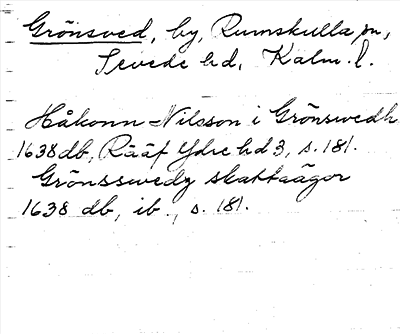 Grönsved, by, Rumskulla sn,
Sevede hd, Kalm. l.
Håkonn Nilsson i Grönswedh
1638 db, Rääf Ydre hd 3, s. 181.
Grönsswedz skattaägor
1638 db, ib., s. 181.